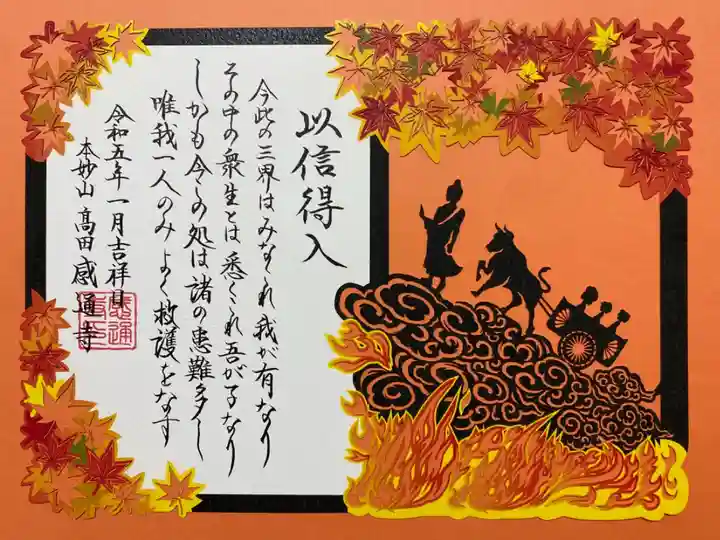 以信得入
今此の三界はみなこれ我が有なり
その中の衆生とは悉くこれ吾が子なり
しかも今この処は諸の患難多し
唯我一人のみよく救護をなす
令和五年一月吉祥日
本妙山 高田 感通寺